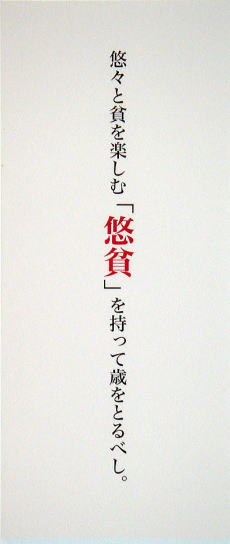 悠々と貧を楽しむ「悠貧」を持って歳をとるべし。